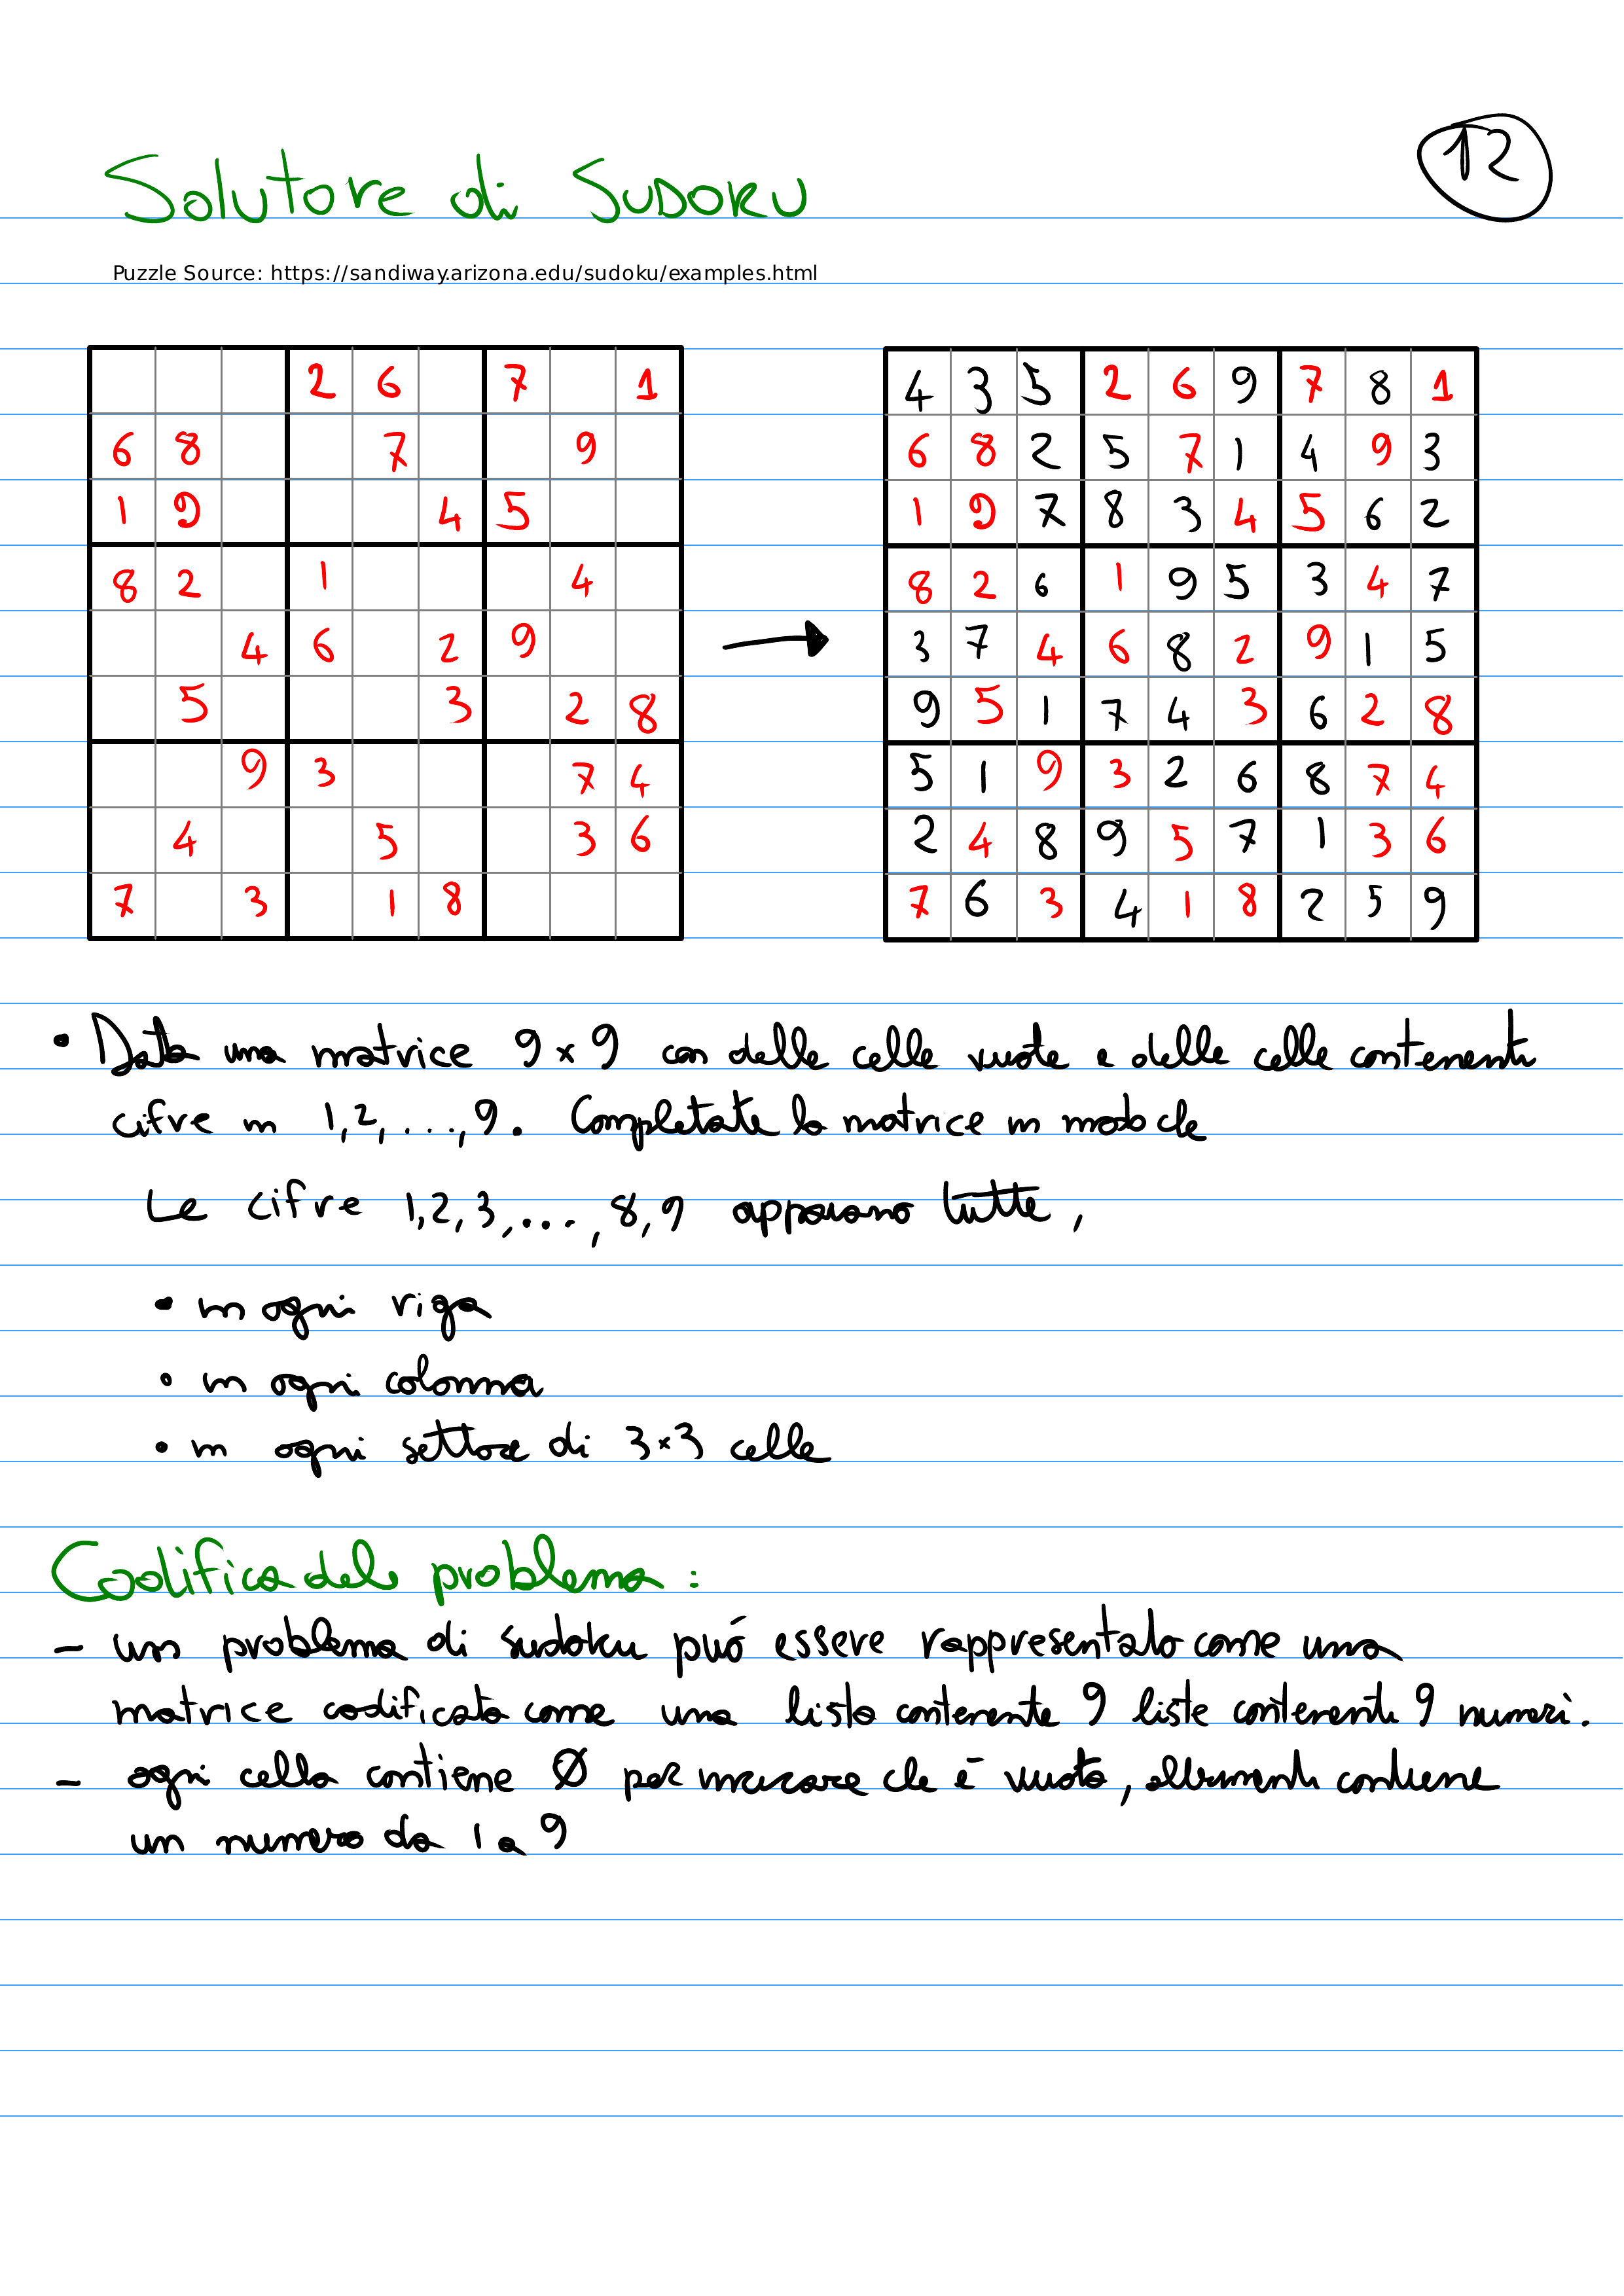 Solutore di Sudoku
12
Puzzle Source: https://sandiway.arizona.edu/sudoku/examples.html
2 6 7 1
6 8 7 9
1 9 4 5
8 2 1 4
4 6 2 9
5 3 2 8
9 3 7 4
4 5 3 6
7 3 1 8
→
4 3 5 2 6 9 7 8 1
6 8 2 5 7 1 4 9 3
1 9 7 8 3 4 5 6 2
8 2 6 1 9 5 3 4 7
3 7 4 6 8 2 9 1 5
9 5 1 7 4 3 6 2 8
5 1 9 3 2 6 8 7 4
2 4 8 9 5 7 1 3 6
7 6 3 4 1 8 2 5 9
• Data una matrice 9 x 9 con delle celle vuote e delle celle contenenti
cifre in 1,2,...,9. Completate la matrice in modo che
Le cifre 1,2,3,...,8,9 appaiano tutte,
• in ogni riga
• in ogni colonna
• in ogni settore di 3x3 celle
Codifica del problema:
- un problema di sudoku può essere rappresentato come una
matrice codificata come una lista contenente 9 liste contenenti 9 numeri.
- ogni cella contiene Ø per marcare che è vuota, altrimenti contiene
un numero da 1 a 9